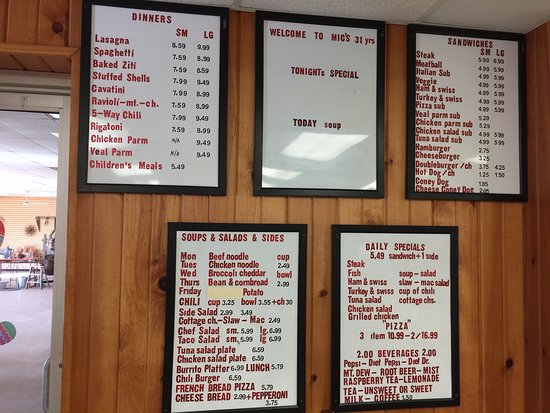 DINNERS
SM LG
Lasagna 8.59 9.99
Spaghetti 7.59 8.99
Baked Ziti 7.59 8.99
Stuffed Shells 7.59 9.49
Cavatini 7.59 8.99
Ravioli-mt.-ch. 7.59 8.99
5-Way Chili 7.59 9.49
Rigatoni 7.59 8.99
Chicken Parm N/A 9.49
Veal Parm N/A 9.49
Children's Meals 5.49
WELCOME TO MIG'S 31 yrs
TONIGHTs SPECIAL
TODAY soup
SANDWICHES
SM LG
Steak 5.99 6.99
Meatball 4.99 5.99
Italian Sub 4.99 5.99
Veggie 4.99 5.99
Ham & swiss 4.99 5.99
Turkey & swiss 4.99 5.99
Pizza sub 4.99 5.99
Veal parm sub 4.99 5.99
Chicken parm sub 4.99 5.99
Chicken salad sub 4.99 5.99
Tuna salad sub 4.99 5.99
Hamburger 2.75
Cheeseburger 3.25
Doubleburger /ch 3.75 4.25
Hot Dog /ch 1.25 1.50
Coney Dog
Cheese Coney Dog
SOUPS & SALADS & SIDES
Mon Beef noodle cup
Tues Chicken noodle 2.49
Wed Broccoli cheddar bowl
Thurs Bean & cornbread 2.99
Friday Potato
CHILI cup 3.25 bowl 3.55 +ch 30
Side Salad 2.99 3.49
Cottage ch.-Slaw - Mac 2.49
Chef Salad sm. 5.99 lg. 6.99
Taco Salad sm. 5.99 lg. 6.99
Tuna salad plate 6.59
Chicken salad plate 6.59
Burrito Platter 6.99 LUNCH 5.79
Chili Burger 6.59
FRENCH BREAD PIZZA 5.79
CHEESE BREAD 2.99 +PEPPERONI 3.75
DAILY SPECIALS
5.49 sandwich + 1 side
Steak
Fish soup - salad
Ham & swiss slaw - mac salad
Turkey & swiss cup of chili
Tuna salad cottage chs.
Chicken salad
Grilled chicken
"PIZZA"
3 item 10.99 - 2/16.99
2.00 BEVERAGES 2.00
Pepsi - Diet Pepsi - Diet Dr.
MT. DEW - ROOT BEER - MIST
RASPBERRY TEA - LEMONADE
TEA - UNSWEET or SWEET
MILK - COFFEE 1.50